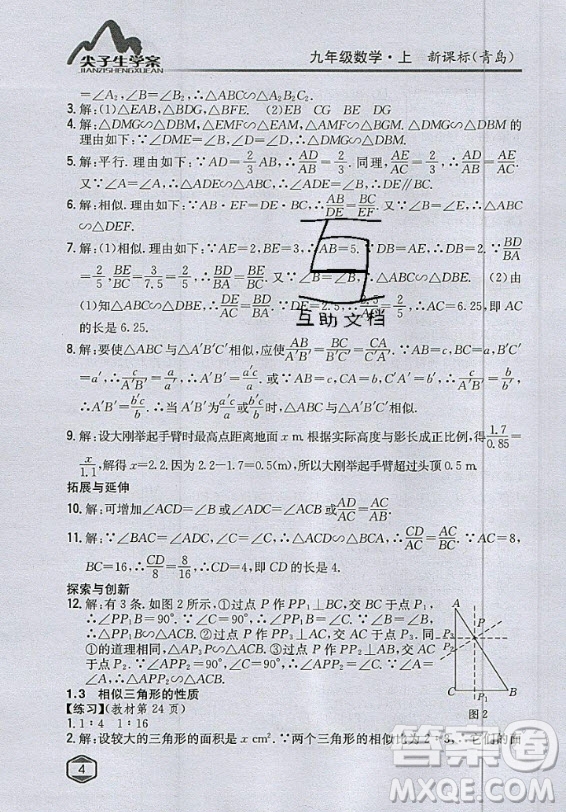 尖子生学案
JIANZISHENGXUEAN
九年级数学·上 新课标(青岛)
=∠A₂,∠B=∠B₂,∴△ABC∽△A₂B₂C₂.
3. 解:(1)△EAB,△BDG,△BFE. (2)EB CG BE BC
4. 解:△DMG∽△DBM,△EMF∽△EAM,△AMF∽△BGM. 理由如下:以△DMG∽△DBM为例.∵∠DME=∠B,∠D=∠D,∴△DMG∽△DBM.
5. 解:平行. 理由如下:∵AD=2/3 AB,∴AD/AB=2/3. 同理,AE/AC=2/3,∴AD/AB=AE/AC.
又∵∠A=∠A,∴△ADE∽△ABC,∴∠ADE=∠B,∴DE∥BC.
6. 解:相似. 理由如下:∵AB·EF=DE·BC,∴AB/DE=BC/EF. 又∵∠B=∠E,∴△ABC∽△DEF.
7. 解:(1)相似. 理由如下:∵AE=2,BE=3,∴AB=5. ∵DB=AE=2,∴BD/BA
=2/5,BE/BC=3/7.5=2/5,∴BD/BA=BE/BC. 又∵∠B=∠B, (2)由
(1)知△ABC∽△DBE,∵DE=2.5,∴2.5/AC=2/5,∴AC=6.25,即AC的长是6.25.
8. 解:要使△ABC与△A′B′C′相似,应使AB/A′B′=AC/A′C′=BC/B′C′. ∵BC/B′C′
=a′,∴c/A′B′=a′,b/A′C′=a′,
∴A′B′=c/a′,A′C′=b/a′.
9. 解:设大刚举起手臂时最高点距离地面x m. 根据实际高度与影长成正比例,得1.7/0.85
=x/1.1,解得x=2.2. 因为2.2-1.7=0.5(m),所以大刚举起手臂超过头顶0.5 m.
拓展与延伸
10. 解:可增加∠ACD=∠B或∠ADC=∠ACB或AD/AC=AC/AB.
11. 解:∵∠ACD=∠ABC,∠C=∠C,∴△ABC∽△DAC,∴CD/AC=AC/BC. ∵AC=8,
BC=16,∴CD/8=8/16,∴CD=4,即CD的长是4.
探索与创新
12. 解:有3条. 如图2所示,①过点P作PP₁⊥BC,交BC于点P₁,
∴∠PP₁B=90°. ∵∠C=90°,∴∠C=∠PP₁B. ∵∠B=∠B,
∴△PP₁B∽△ACB. ②过点P作PP₂⊥AC,交AC于点P₂,同
①的道理可得△APP₂∽△ABC. ③过点P作PP₃⊥AB,交AC于点
P₃. ∵∠APP₃=∠C=90°,∠A=∠A,∴△APP₃∽△ACB.
A
P
C P₁ B
图2
1.3 相似三角形的性质
【练习】(教材第24页)
1. 1:4 1:16
2. 解:设较大的三角形的面积是x cm². ∵两个三角形的相似比为2:3,∴它们的面
4
互助文档
MXQE.COM